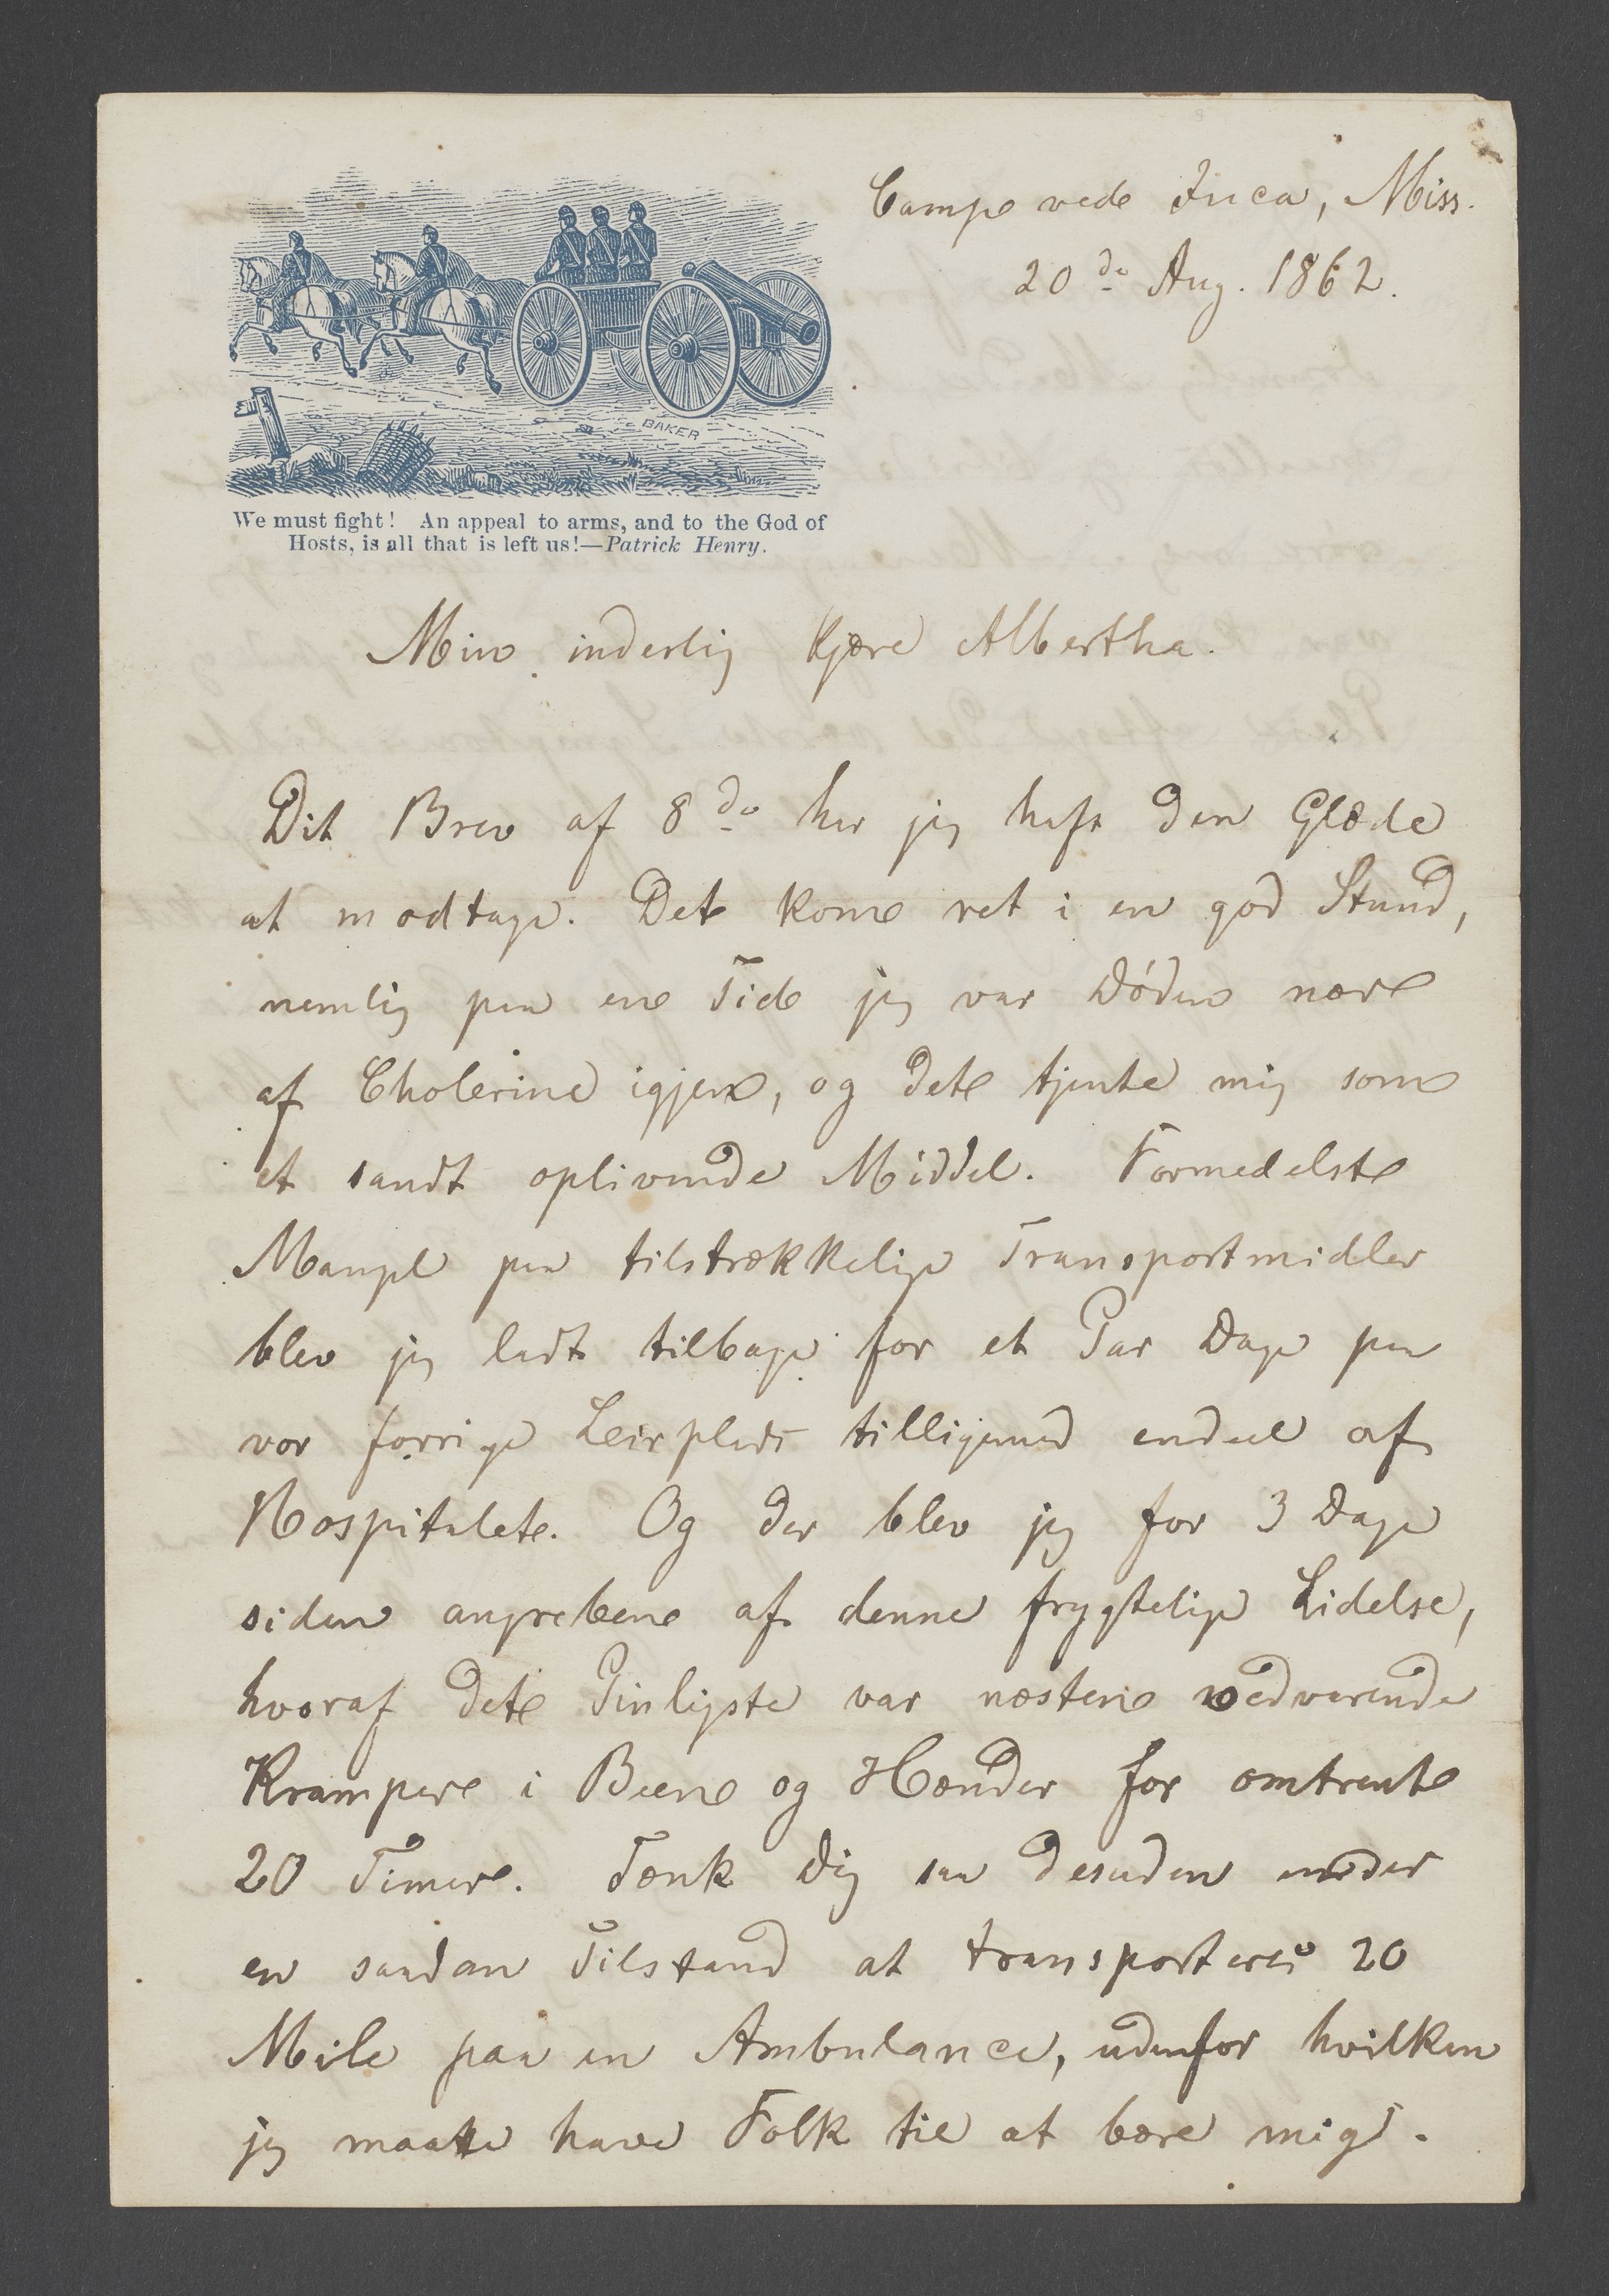 Camp ved Iuca, Miss.
20de Aug. 1862.
BAKER
We must fight! An appeal to arms, and to the God of
Hosts, is all that is left us!—Patrick Henry.
Min inderlig Kjære Albertha.
Dit Brev af 8de har jeg haft den Glæde
at modtage. Det kom ret i en god Stund,
nemlig paa en Tid jeg var Døden nær
af Cholerine igjen, og det tjente mig som
et sandt oplivende Middel. Formedelst
Mangel paa tilstrækkelige Transportmidler
blev jeg ladt tilbage for et Par Dage paa
vor forrige Leirplads tilligemed endeel af
Hospitalet. Og der blev jeg for 3 Dage
siden angreben af denne frygtelige Lidelse,
hvoraf det Pinligste var næsten vedvarende
Kramper i Been og Hænder for omtrent
20 Timer. Tænk Dig saa desuden under
en saadan Tilstand at transporteres 20
Mile paa en Ambulance, udenfor hvilken
jeg maatte have Folk til at bære mig.